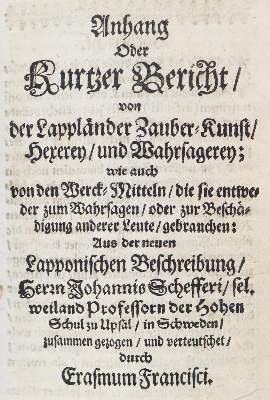 Anhang
Oder
Kurtzer Bericht /
von
der Lappländer Zauber-Kunst /
Hexerey / und Wahrsagerey;
wie auch
von den Werck-Mitteln / die sie entwe-
der zum Wahrsagen / oder zur Beschä-
digung anderer Leute / gebrauchen:
Aus der neuen
Lapponischen Beschreibung /
Herrn Johannis Schefferi / sel.
weiland Professorn der Hohen
Schul zu Upsal / in Schweden /
zusammen gezogen / und verteutschet /
durch
Erasmum Francisci.